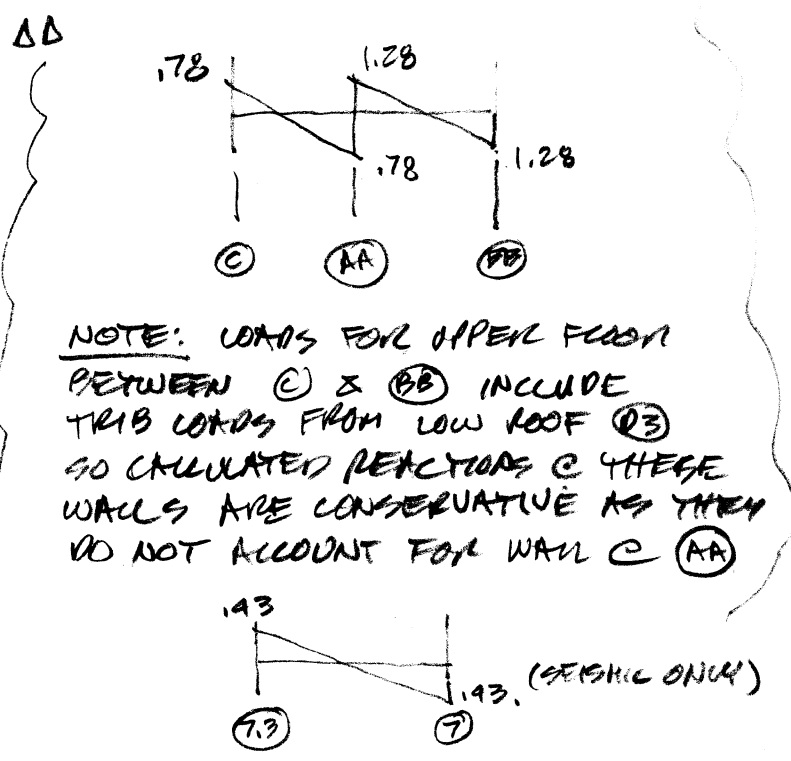 ΔΔ
.78 1.28
.78 1.28
C AA BB
NOTE: LOADS FOR UPPER FLOOR
BETWEEN C & BB INCLUDE
TRIB LOADS FROM LOW ROOF R3
SO CALCULATED REACTIONS @ THESE
WALLS ARE CONSERVATIVE AS THEY
DO NOT ACCOUNT FOR WALL @ AA
.43
.43. (SEISMIC ONLY)
7.3 7